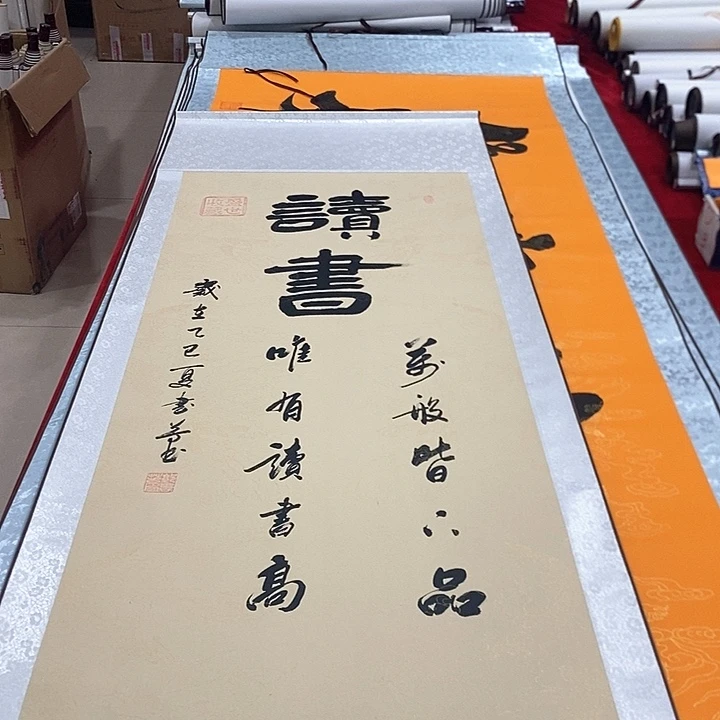 讀書
萬般皆下品
唯有讀書高
歲在乙巳夏書